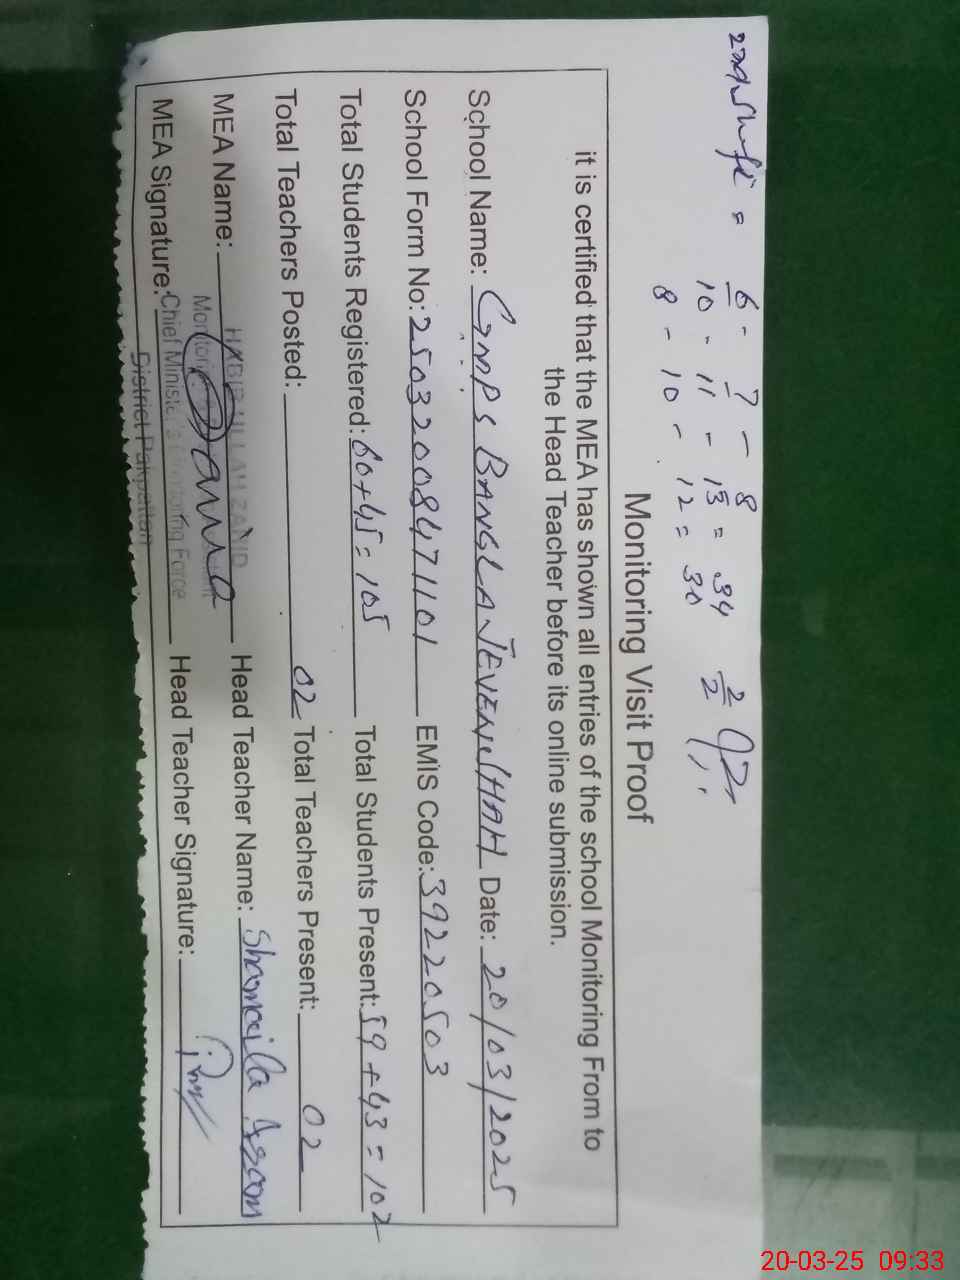 2nd Shift = 6 - 7 - 8
10 - 11 - 13 = 34 2/2
8 - 10 - 12 = 30
Monitoring Visit Proof
it is certified that the MEA has shown all entries of the school Monitoring From to
the Head Teacher before its online submission.
School Name: GMPS BANGLA JEVEN SHAH Date: 20/03/2025
School Form No: 25032008471101 EMIS Code: 39220503
Total Students Registered: 60+45=105 Total Students Present: 59+43=102
Total Teachers Posted: 02 Total Teachers Present: 02
MEA Name: HABIB ULLAH ZAHID Head Teacher Name: Shomaila
MEA Signature: Head Teacher Signature:
Chief Minister's Monitoring Force
District Pakpattan
20-03-25 09:33